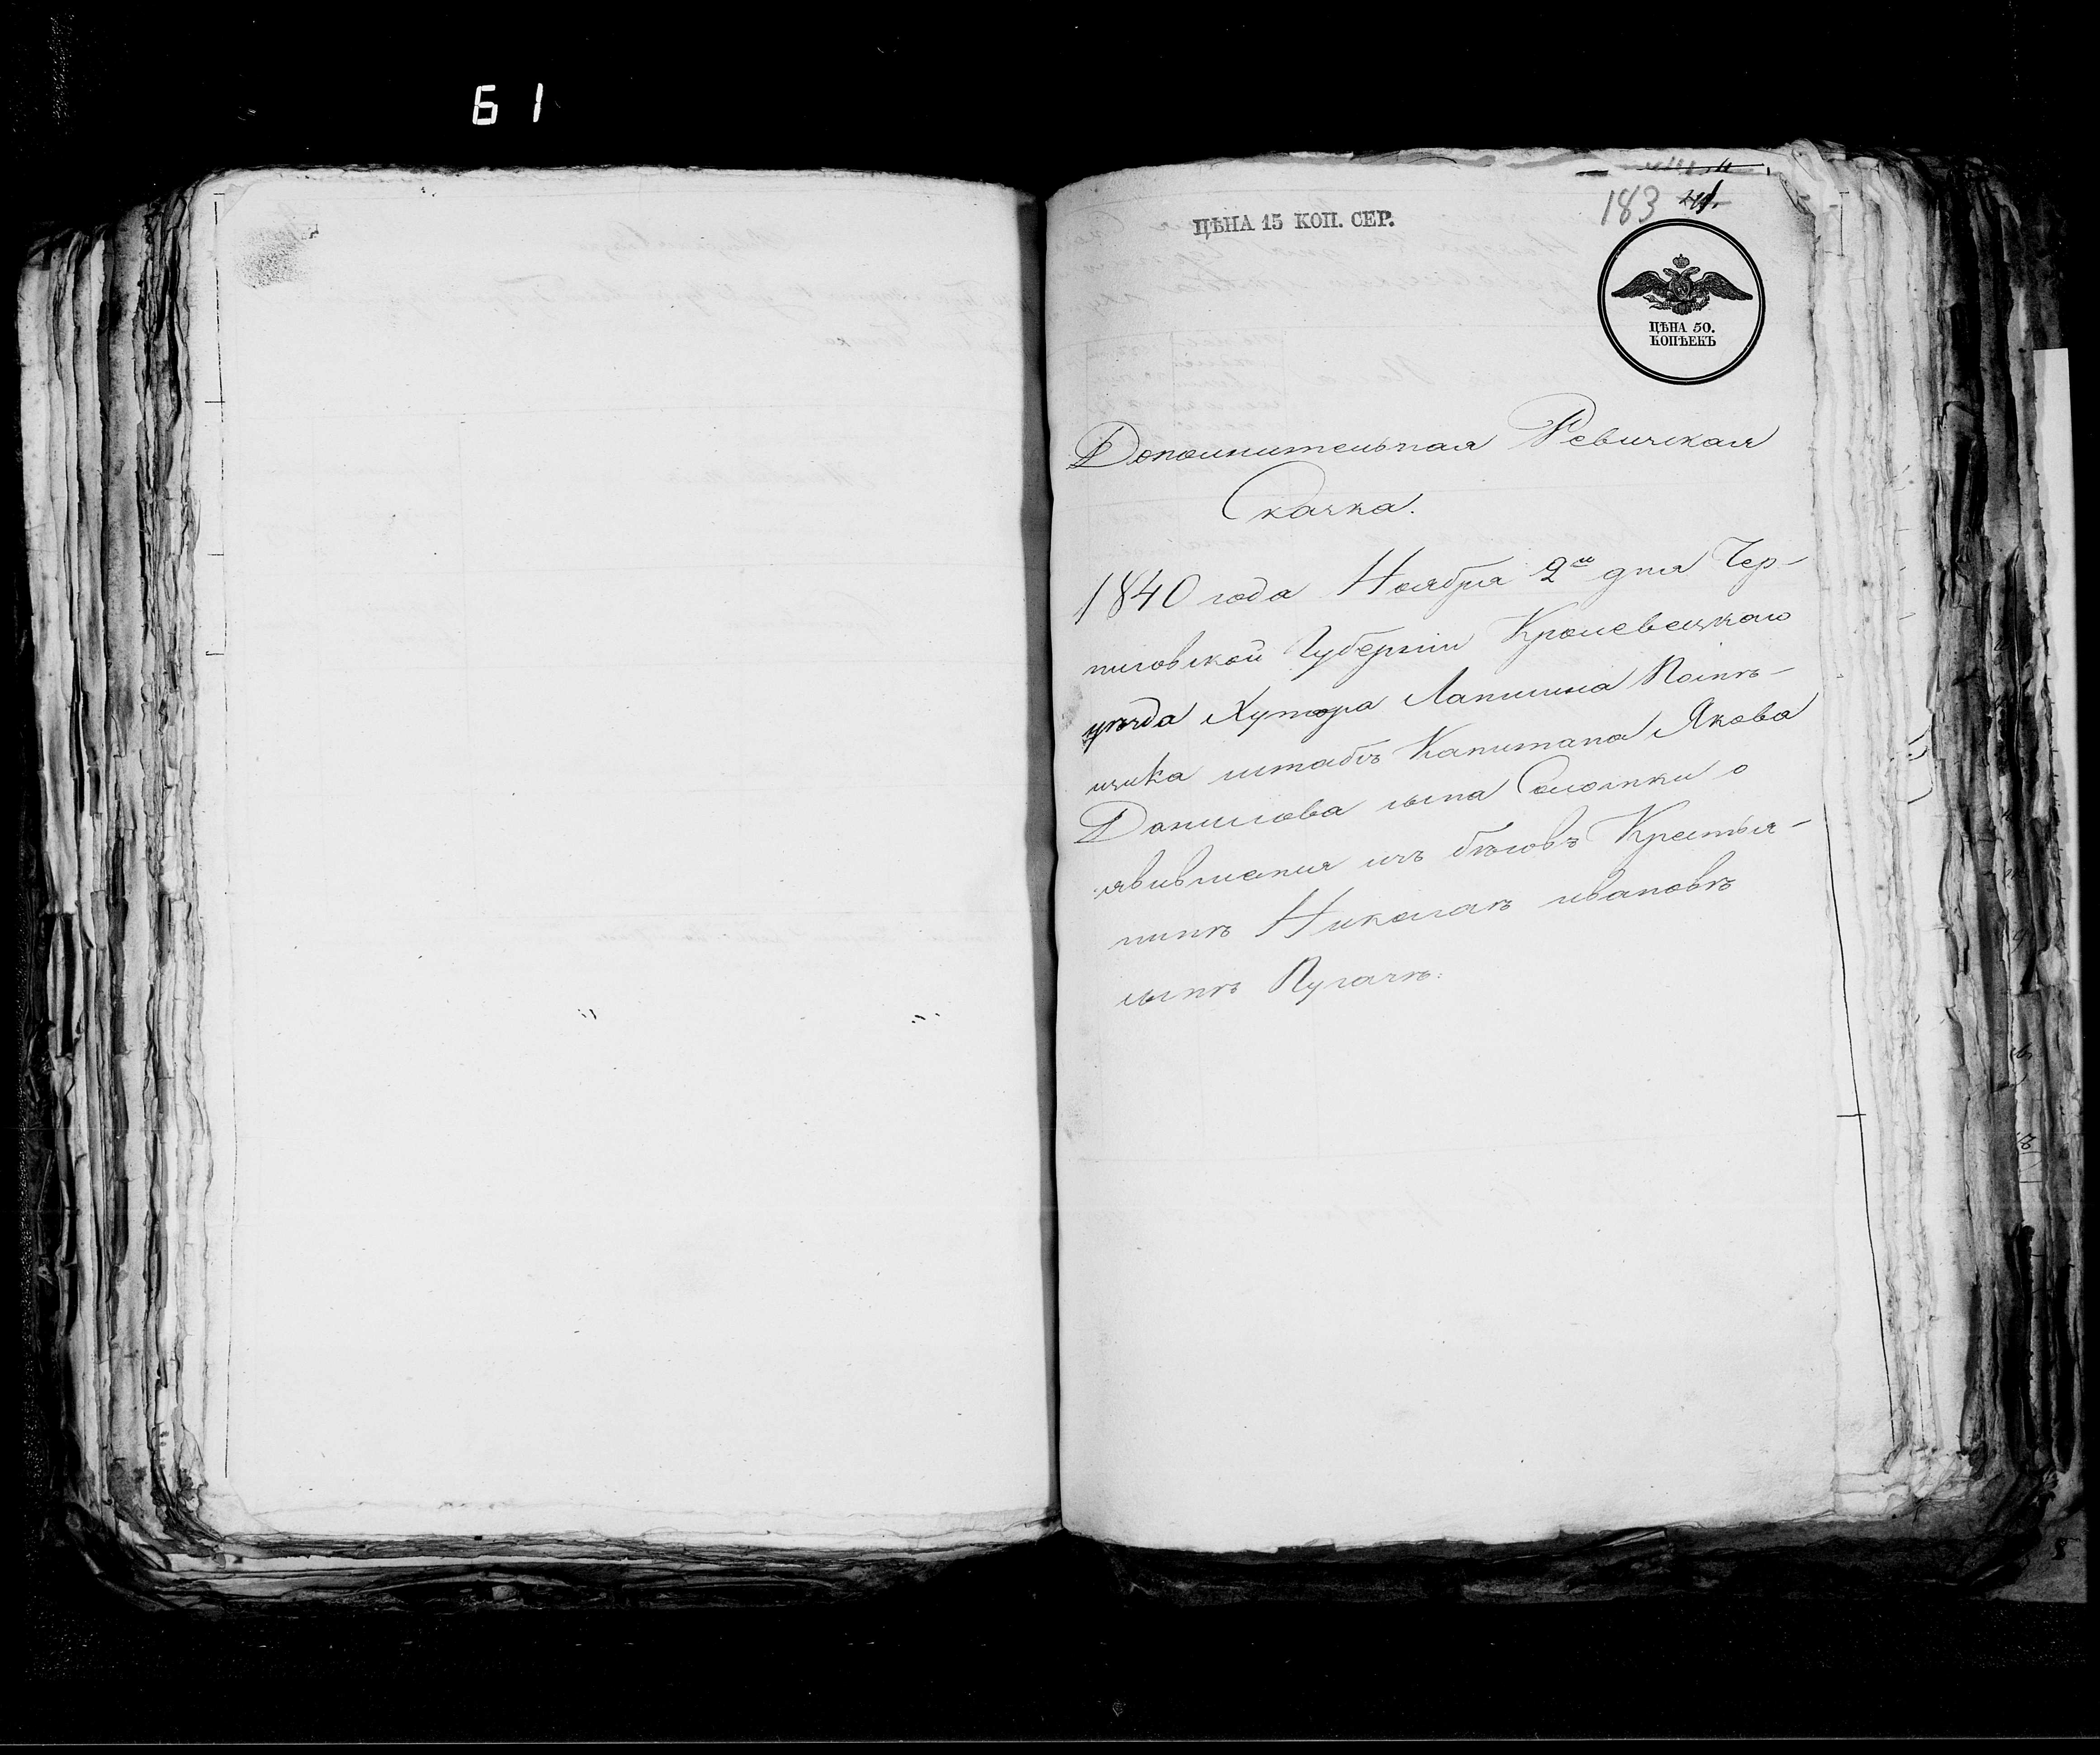 61
183
ЦѢНА 15 КОП. СЕР.
ЦѢНА 50.
КОПѢЕКЪ
Дополнительная Ревижская
Скаска.
1840 года Ноября 2го дня Чер-
ниговской Губерніи Кролевецкаго
уезда Хутора Лапшина Помѣ-
щика штабъ Капитана Якова
Данилова сына Солонки о
явившемся изъ бѣговъ Крестья-
нинѣ Николаѣ ивановѣ
сынѣ Пугачѣ.